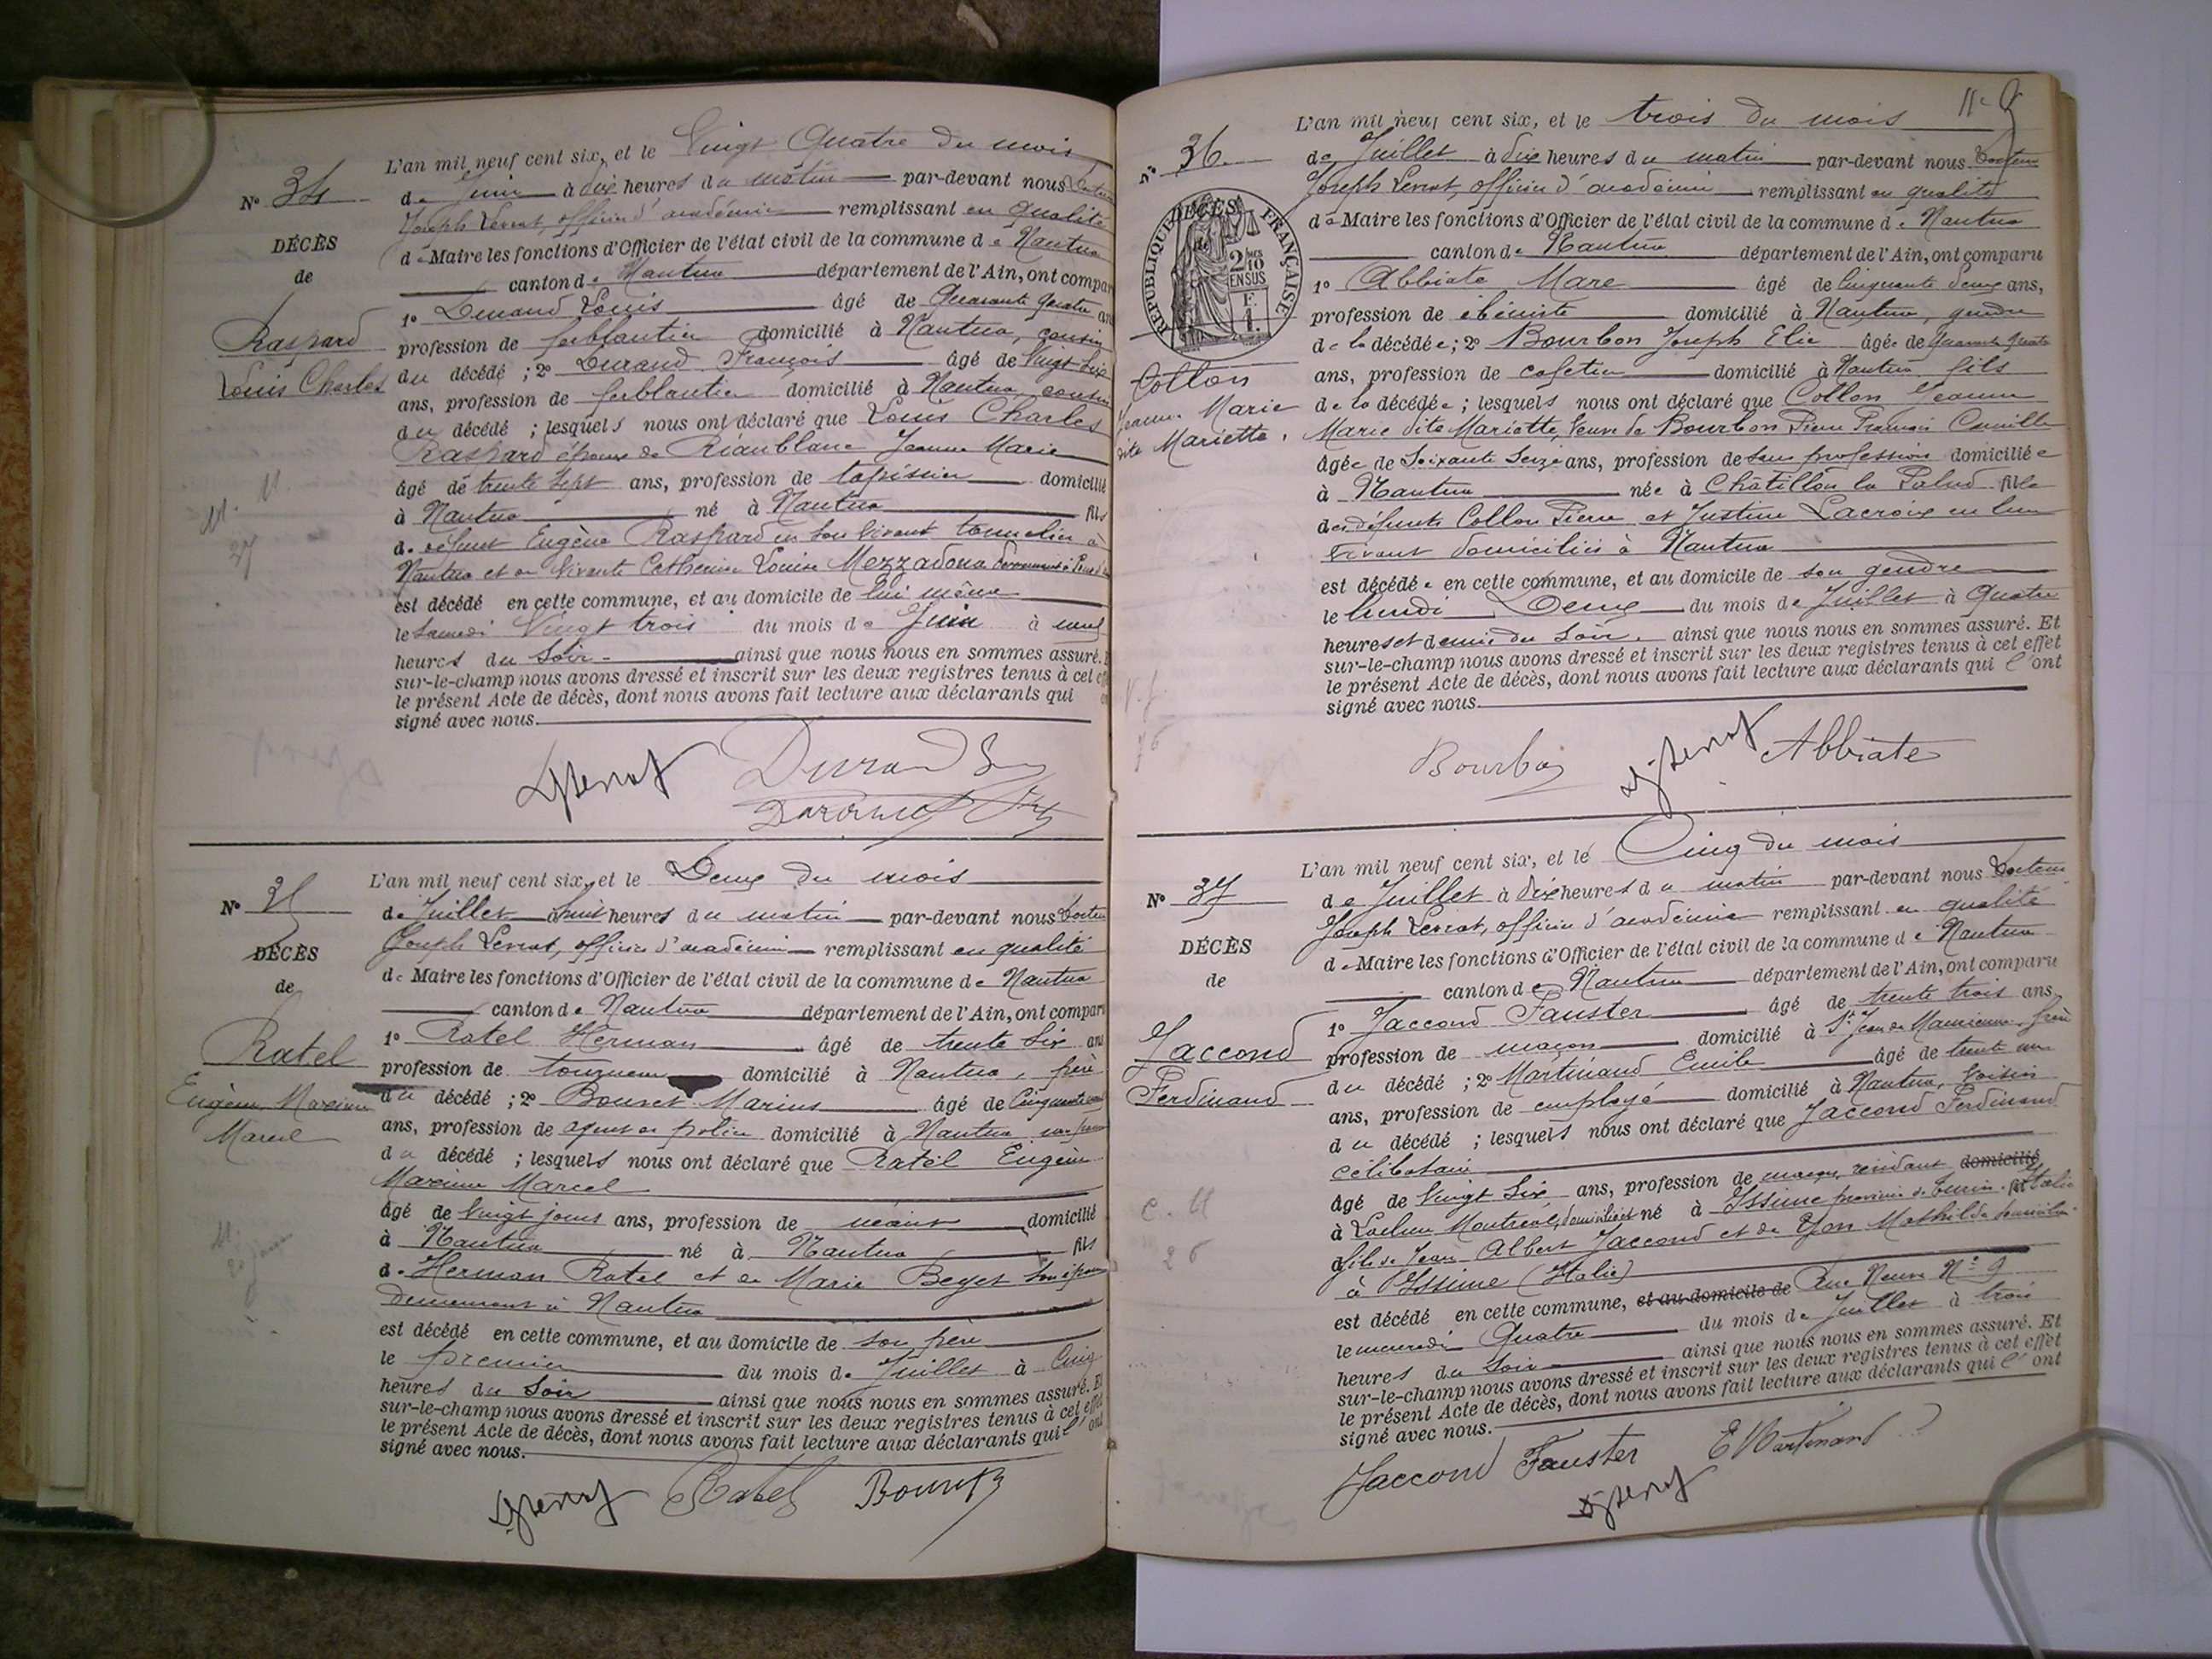 L'an mil neuf cent six, et le Vingt Quatre du mois
de Juin à dix heures du matin par-devant nous Docteur
Nº 34
Joseph Levrat, officier d'académie remplissant en qualité
DÉCÈS
de Maire les fonctions d'Officier de l'état civil de la commune de Nantua
de
canton de Nantua département de l'Ain, ont compar
1º Durand Louis âgé de Quarante quatre an
Raspard
profession de ferblantier domicilié à Nantua, cousin
Louis Charles
du décédé ; 2º Durand François âgé de Vingt six
ans, profession de ferblantier domicilié à Nantua, cousin
du décédé ; lesquels nous ont déclaré que Louis Charles
Raspard époux de Réanblanc Jeanne Marie
âgé de trente sept ans, profession de tapissier domicilié
M.
à Nantua né à Nantua fils
37
de défunt Eugène Raspard en son vivant tonnelier à
Nantua et de vivante Catherine Louise Mezzadona
est décédé en cette commune, et au domicile de lui même
le Samedi Vingt trois du mois de Juin à neuf
heures du Soir ainsi que nous nous en sommes assuré.
sur-le-champ nous avons dressé et inscrit sur les deux registres tenus à cet
le présent Acte de décès, dont nous avons fait lecture aux déclarants qui
signé avec nous.
Durand
L'an mil neuf cent six, et le Deux du mois
Nº 35
de Juillet à huit heures du matin par-devant nous Docteur
DÉCÈS
Joseph Levrat, officier d'académie remplissant en qualité
de
de Maire les fonctions d'Officier de l'état civil de la commune de Nantua
canton de Nantua département de l'Ain, ont compar
Ratel
1º Ratel Herman âgé de trente Six ans
profession de tourneur domicilié à Nantua, père
Eugène Maxime
du décédé ; 2º Bouvet Marius âgé de Cinquante
Marcel
ans, profession de agent de police domicilié à Nantua
du décédé ; lesquels nous ont déclaré que Ratel Eugène
Maxime Marcel
âgé de Vingt jours ans, profession de néant domicilié
à Nantua né à Nantua fils
de Herman Ratel et de Marie Beyet
demeurant à Nantua
est décédé en cette commune, et au domicile de son père
le premier du mois de Juillet à Cinq
heures du Soir ainsi que nous nous en sommes assuré. Et
sur-le-champ nous avons dressé et inscrit sur les deux registres tenus à cet effet
le présent Acte de décès, dont nous avons fait lecture aux déclarants qui l'ont
signé avec nous.
Ratel
L'an mil neuf cent six, et le trois du mois
Nº 36
de Juillet à dix heures du matin par-devant nous Docteur
Joseph Levrat, officier d'académie remplissant en qualité
RÉPUBLIQUE FRANÇAISE
DÉCÈS
2 10 EN SUS
de Maire les fonctions d'Officier de l'état civil de la commune de Nantua
canton de Nantua département de l'Ain, ont comparu
1º Abbiate Marc âgé de Cinquante deux ans,
profession de ébéniste domicilié à Nantua, gendre
de la décédée ; 2º Bourbon Joseph Elie âgé de Quarante quatre
Collon
ans, profession de cafetier domicilié à Nantua fils
Jeanne Marie
de la décédée ; lesquels nous ont déclaré que Collon Jeanne
dite Mariette.
Marie dite Mariette, Veuve de Bourbon Pierre François Camille
âgée de Soixante Seize ans, profession de Sans profession domiciliée
à Nantua née à Châtillon la Palud fille
des défunts Collon Pierre et Justine Lacroix en leur
vivant domiciliés à Nantua
est décédée en cette commune, et au domicile de son gendre
le lundi Deux du mois de Juillet à Quatre
heures et demie du Soir. ainsi que nous nous en sommes assuré. Et
sur-le-champ nous avons dressé et inscrit sur les deux registres tenus à cet effet
le présent Acte de décès, dont nous avons fait lecture aux déclarants qui l'ont
signé avec nous.
76
Bourbon
Abbiate
L'an mil neuf cent six, et le Cinq du mois
Nº 37
de Juillet à dix heures du matin par-devant nous Docteur
Joseph Levrat, officier d'académie remplissant en qualité
DÉCÈS
de Maire les fonctions d'Officier de l'état civil de la commune de Nantua
de
canton de Nantua département de l'Ain, ont comparu
1º Jaccond Fauster âgé de trente trois ans,
Jaccond
profession de maçon domicilié à St Jean de Maurienne, frère
Ferdinand
du décédé ; 2º Martinand Emile âgé de trente un
ans, profession de employé domicilié à Nantua, Voisin
du décédé ; lesquels nous ont déclaré que Jaccond Ferdinand
célibataire
âgé de Vingt Six ans, profession de maçon, résidant domicilié
à Montréal, domicilié né à Issime province de Turin. Italie
fils de Jean Albert Jaccond et de Yon Mathilde
26
à Issime (Italie)
est décédé en cette commune, et au domicile de Rue Neuve Nº 9
le mercredi Quatre du mois de Juillet à trois
heures du Soir ainsi que nous nous en sommes assuré. Et
sur-le-champ nous avons dressé et inscrit sur les deux registres tenus à cet effet
le présent Acte de décès, dont nous avons fait lecture aux déclarants qui l'ont
signé avec nous.
Jaccond Fauster
E Martinand